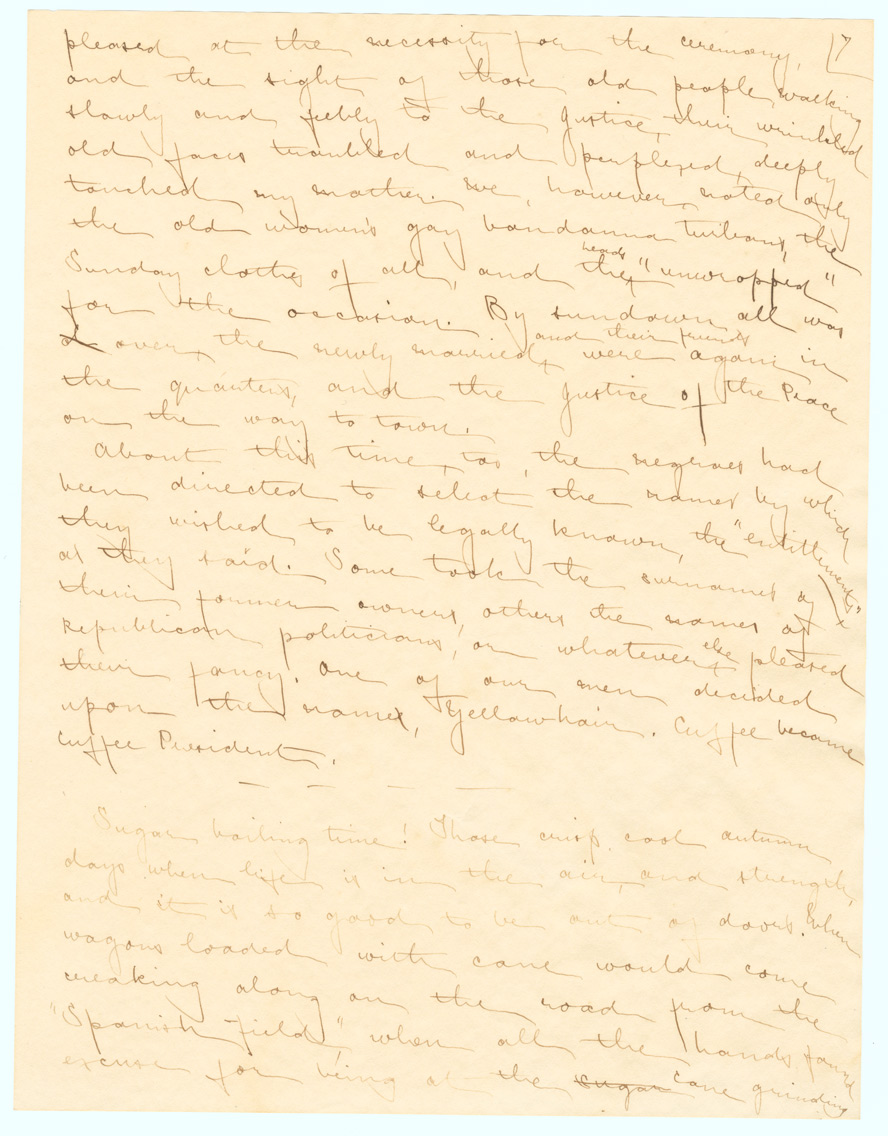 pleased at the necessity for the ceremony, 17
and the sight of those old people walking
slowly and feebly to the Justice, their wrinkled
old faces troubled and perplexed, deeply
touched my mother. We, however, noted only
the old women's gay bandanna turbans, the
Sunday clothes of all, and the heads "unwropped"
for the occasion. By sundown all was
over, the newly married, and their friends were again in
the quarters, and the Justice of the Peace
on the way to town.
About this time, too, the negroes had
been directed to select the names by which
they wished to be legally known, the "entitlements"
as they said. Some took the surnames of
their former owners, others the names of
Republican politicians, or whatever else pleased
their fancy. One of our men decided
upon the name, Yellowhair. Cuffee became
Cuffee President.
— — — —
Sugar boiling time! Those crisp cool autumn
days when life is in the air, and strength,
and it is so good to be out of doors. When
wagons loaded with cane would come
creaking along on the road from the
"Spanish field" when all the hands found
excuse for being at the sugar cane grinding